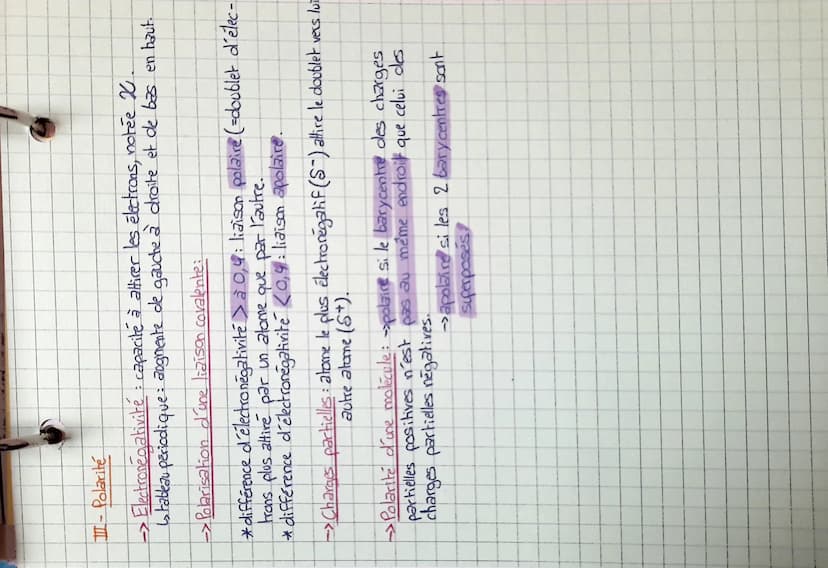 III - Polarité
-> Electronégativité : capacité à attirer les électrons, notée X.
↳ tableau périodique : augmente de gauche à droite et de bas en haut.
-> Polarisation d'une liaison covalente :
* différence d'électronégativité > à 0,4 : liaison polaire (= doublet d'élec-
trons plus attiré par un atome que par l'autre.
* différence d'électronégativité < 0,4 : liaison apolaire.
-> Charges partielles : atome le plus électronégatif (δ-) attire le doublet vers lui
autre atome (δ+).
-> Polarité d'une molécule : -> polaire si le barycentre des charges
partielles positives n'est pas au même endroit que celui des
charges partielles négatives.
-> apolaire si les 2 barycentres sont
superposés